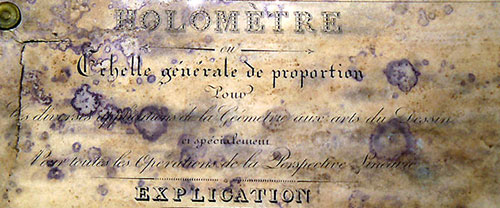 HOLOMÈTRE
ou
Échelle générale de proportion
Pour
Les diverses applications de la Géométrie aux arts du Dessin
et spécialement
Pour toutes les Opérations de la Perspective Linéaire
EXPLICATION